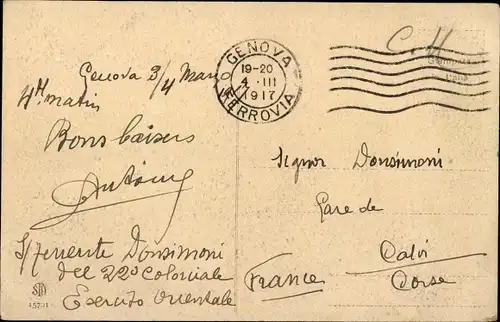 Genova 3/4 Mars
4H. matin
Bons baisers
Antoine
S/Tenente Donsimoni
del 22º Coloniale
Esercito Orientale
GENOVA
19-20
4 III
1917
FERROVIA
C. H
Signor Donsimoni
Gare de
Calvi
Corse
France